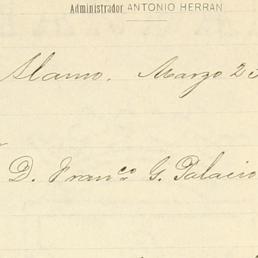 Administrador ANTONIO HERRAN
Alamo. Marzo 25
D. Franco G. Palacio